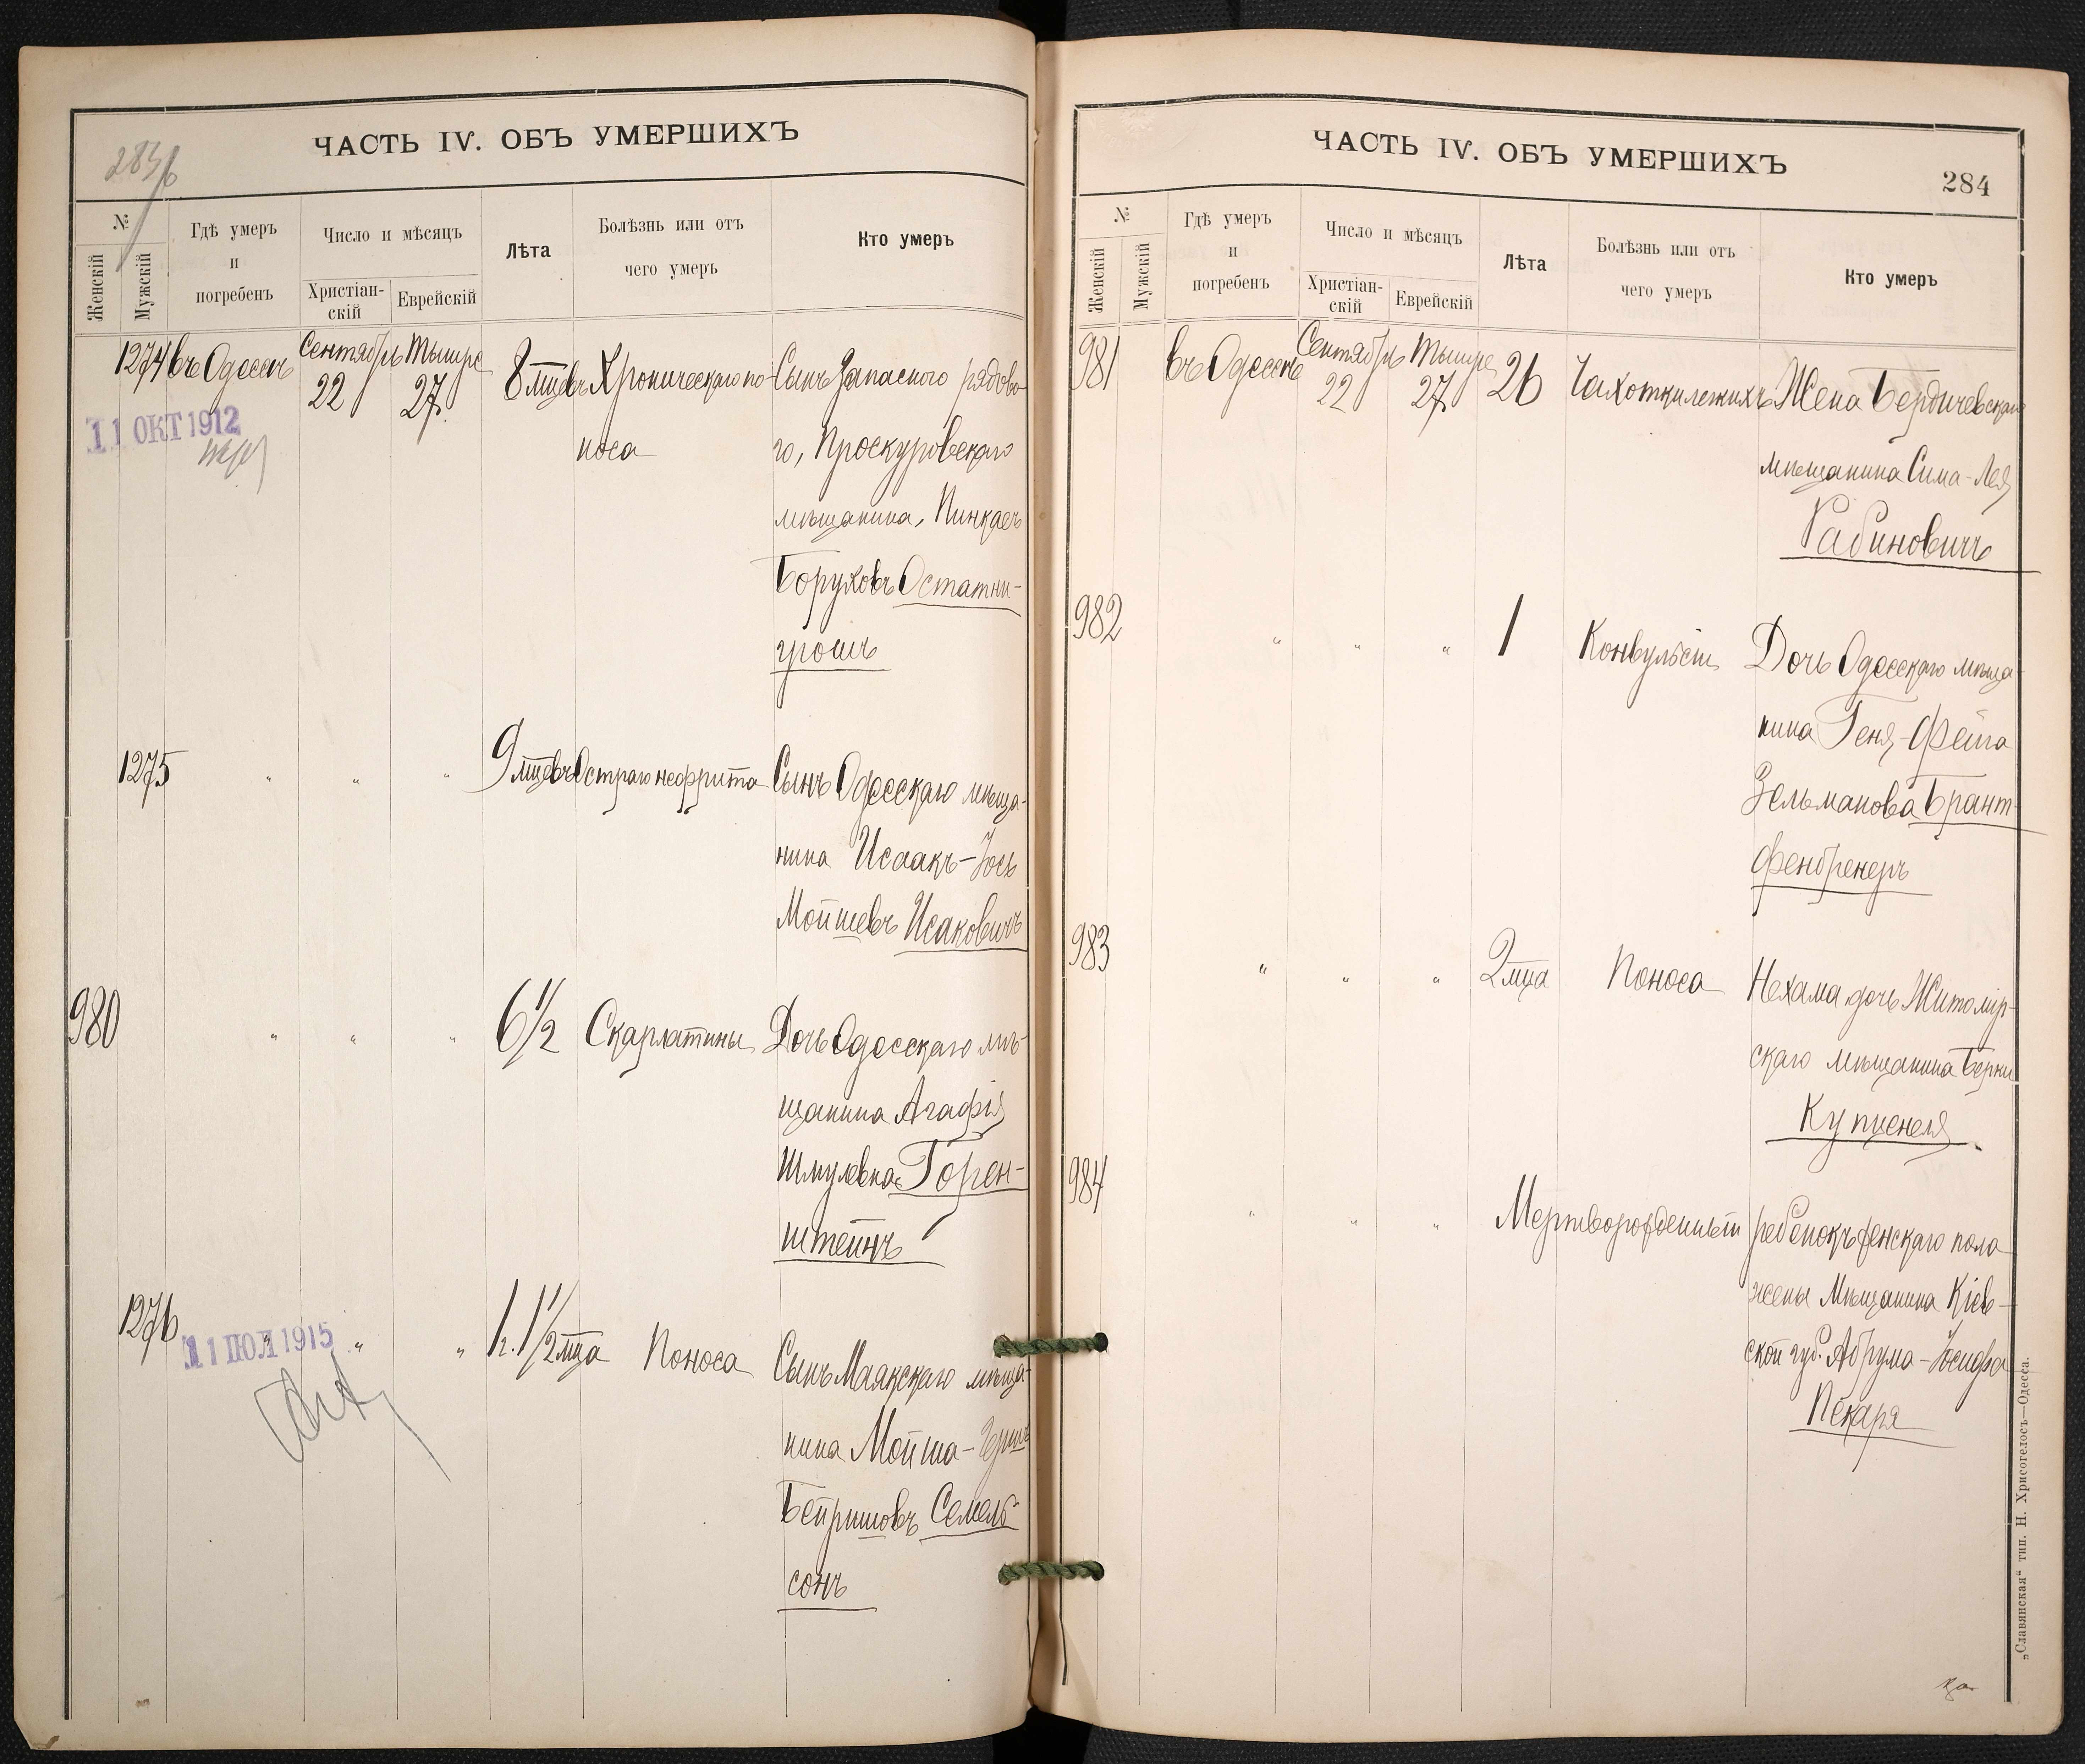 283/б
ЧАСТЬ IV. ОБЪ УМЕРШИХЪ
№
Женскій
Мужскій
Гдѣ умеръ
и
погребенъ
Число и мѣсяцъ
Христіан-
скій
Еврейскій
Лѣта
Болѣзнь или отъ
чего умеръ
Кто умеръ
1274 въ Одессѣ Сентябрь 22 Тышре 27 8 мцевъ Хроническаго по- Сынъ Запасного рядово-
11 ОКТ 1912
носа го, Проскуровскаго
мѣщанина, Пинкасъ
Боруховъ Остатни-
грошъ
1275 " " " 9 мцевъ Остраго нефрита Сынъ Одесскаго мѣща-
нина Исаакъ-Іось
Мойшевъ Исаковичъ
980 " " " 6 1/2 Скарлатины Дочь Одесскаго мѣ-
щанина Агафія
Шмулевна Горен-
штейнъ
1276 " " " 1 г. 1 1/2 мца Поноса Сынъ Маякскаго мѣща-
11 ІЮЛ 1915
нина Мойша-Гершъ
Бейришовъ Семель-
сонъ
ЧАСТЬ IV. ОБЪ УМЕРШИХЪ
284
№
Женскій
Мужскій
Гдѣ умеръ
и
погребенъ
Число и мѣсяцъ
Христіан-
скій
Еврейскій
Лѣта
Болѣзнь или отъ
чего умеръ
Кто умеръ
981 въ Одессѣ Сентябрь 22 Тышре 27 26 Чахотки легкихъ Жена Бердичевскаго
мѣщанина Сима-Лея
Рабиновичъ
982 " " " 1 Конвульсіи Дочь Одесскаго мѣща-
нина Геня-Фейга
Зельманова Брант-
фенбренеръ
983 " " " 2 мца Поноса Нехама дочь Житомір-
скаго мѣщанина Берки
Купценеля
984 " " " Мертворожденный ребенокъ женскаго пола
жены Мѣщанина Кіев-
ской губ. Абрума-Іосифа
Пекаря
„Славянская“ тип. Н. Хрисогелосъ—Одесса.